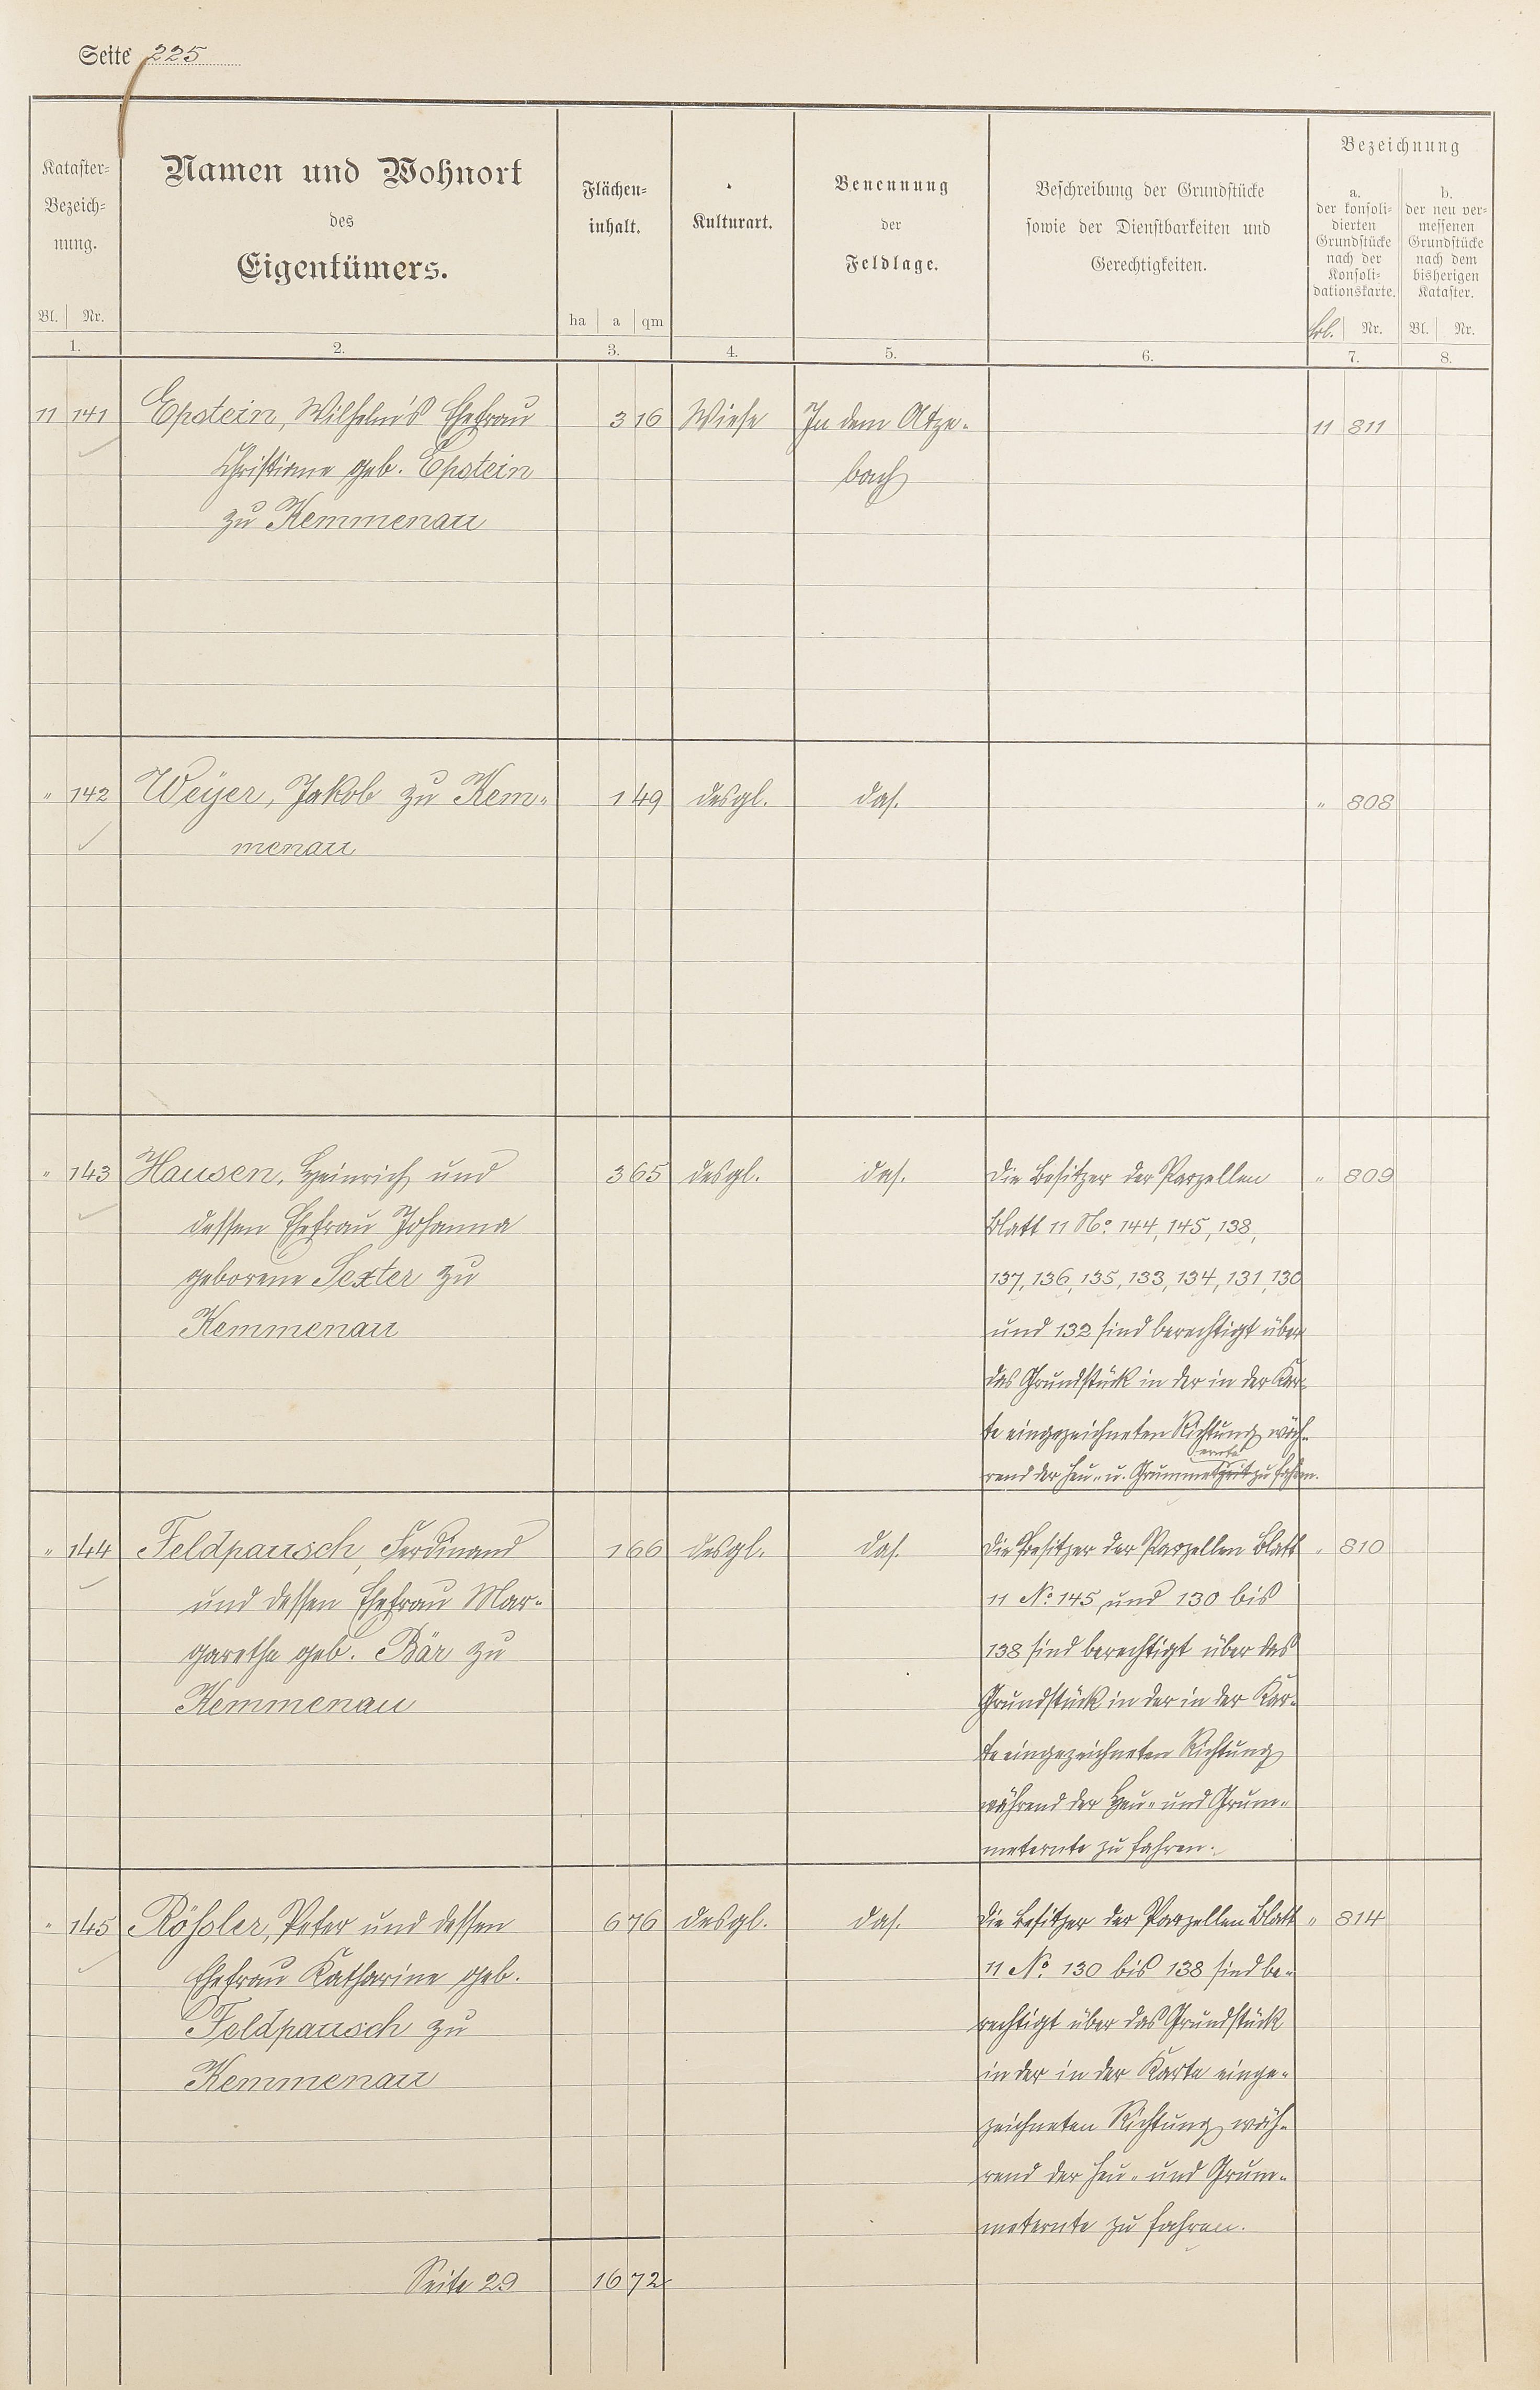 Seite 225
Kataster-
Bezeich-
nung.
Bl. Nr.
1.
Namen und Wohnort
des
Eigentümers.
2.
Flächen-
inhalt.
ha a qm
3.
Kulturart.
4.
Benennung
der
Feldlage.
5.
Beschreibung der Grundstücke
sowie der Dienstbarkeiten und
Gerechtigkeiten.
6.
Bezeichnung
a.
der konsoli-
dierten
Grundstücke
nach der
Konsoli-
dationskarte.
Bl. Nr.
7.
b.
der neu ver-
messenen
Grundstücke
nach dem
bisherigen
Kataster.
Bl. Nr.
8.
11 141 Epstein, Wilhelm's Ehefrau 3 16 Wiese In dem Atze- 11 811
Christiane geb. Epstein bach
zu Kemmenau
" 142 Weyer, Jakob zu Kem- 1 49 desgl. das. " 808
menau
" 143 Hausen, Heinrich und 3 65 desgl. das. Die Besitzer der Parzellen " 809
dessen Ehefrau Johanna Blatt 11 No. 144, 145, 138,
geborene Sexter zu 137, 136, 135, 133, 134, 131, 130
Kemmenau und 132 sind berechtigt über
das Grundstück in der in der Kar-
te eingezeichneten Richtung wäh-
ernte
rend der Heu- u. Grummetzeit zu fahren.
" 144 Feldpausch, Ferdinand 1 66 desgl. das. Die Besitzer der Parzellen Blatt " 810
und dessen Ehefrau Mar- 11 No. 145 und 130 bis
garetha geb. Bär zu 138 sind berechtigt über das
Kemmenau Grundstück in der in der Kar-
te eingezeichneten Richtung
während der Heu- und Grum-
meternte zu fahren.
" 145 Rößler, Peter und dessen 6 76 desgl. das. Die Besitzer der Parzellen Blatt " 814
Ehefrau Katharine geb. 11 No. 130 bis 138 sind be-
Feldpausch zu rechtigt über das Grundstück
Kemmenau in der in der Karte einge-
zeichneten Richtung wäh-
rend der Heu- und Grum-
meternte zu fahren.
Seite 29 16 72